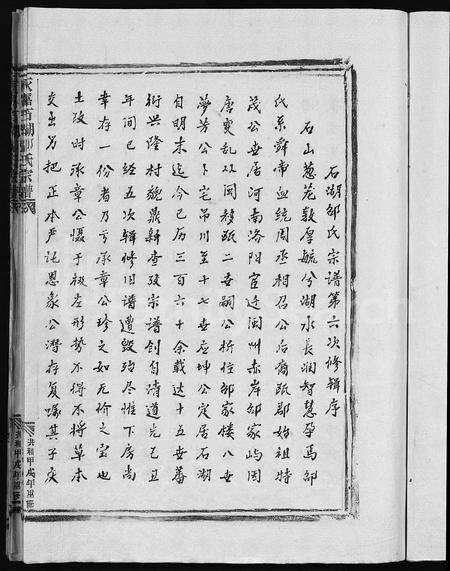 石湖邹氏宗谱第六次修辑序
石山葱茏敦厚毓兮湖水长润智慧孕焉邹
氏系舜帝血统周丞相召公后裔瓯郡始祖特
茂公世居河南洛阳宦迁闽州赤岸邹家屿因
唐变乱从闽移瓯二世嗣公析住邹家楼八世
梦芳公卜宅吊川至十七世应坤公定居石湖
自明末迄今已历三百六十余载达十五世蕃
衍兴隆村貌鼎新查考宗谱创自清道光己丑
年间已经五次辑修旧谱遭毁殆尽惟下房尚
幸存一份者乃亏承章公珍之如无价之宝也
土改时承章公慑于极左形势不得不将草本
交出另把正本严託恩象公潜存复嘱其子庆
共和甲戌年重修
共和甲戌年重修